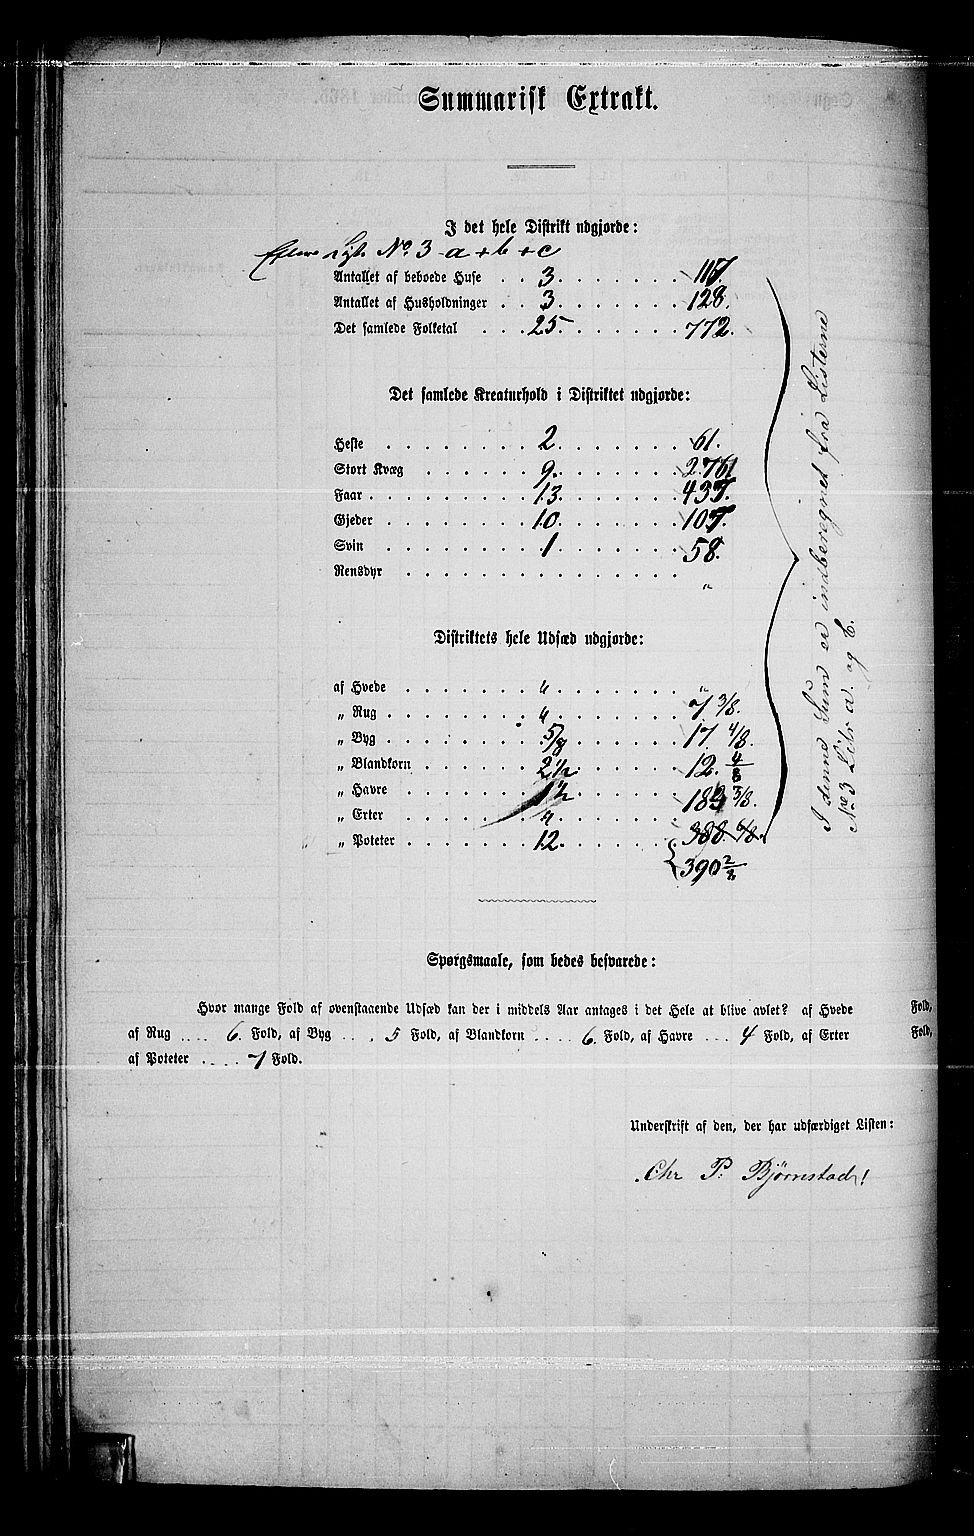 Summarisk Extrakt.
I det hele Distrikt udgjorde:
No 3 a + b + c
Antallet af beboede Huse . . 3. . . . . . . 117
Antallet af Husholdninger . . 3. . . . . . . 128.
Det samlede Folketal . . . 25 . . . . . . 772.
Det samlede Kreaturhold i Distriktet udgjorde:
Heste . . . . . . 2. . . . . . 61.
Stort Kvæg . . . . . 9. . . . . . 
Faar . . . . . . . 13. . . . . . 437.
Gjeder . . . . . . 10. . . . . . 107.
Svin . . . . . . 1 . . . . . . 58.
Rensdyr . . . . . . . . . . . . „
Distriktets hele Udsæd udgjorde:
af Hvede . . . . . „ . . . . . . „
„ Rug . . . . . . „ . . . . . . 7 3/8.
„ Byg . . . . . . 5/8 . . . . . . 17. 4/8.
„ Blandkorn . . . . . 2 1/2 . . . . . . 12. 4/8
„ Havre . . . . . 1 1/2 . . . . . . 3/8.
„ Erter . . . . . . „ . . . . . . „
„ Poteter . . . . . 12. . . . . . . 388. 6/8.
390 2/8
I denne Sum er indberegnet fra Listerne
No 3 Litr a. og C.
Spørgsmaale, som bedes besvarede:
Hvor mange Fold af ovenstaaende Udsæd kan der i middels Aar antages i det Hele at blive avlet? af Hvede Fold,
af Rug .... 6. Fold, af Byg ... 5 Fold, af Blandkorn .... 6. Fold, af Havre ... 4 Fold, af Erter Fold,
af Poteter .... 7 Fold.
Underskrift af den, der har udfærdiget Listen:
Chr P. Bjørnstad!